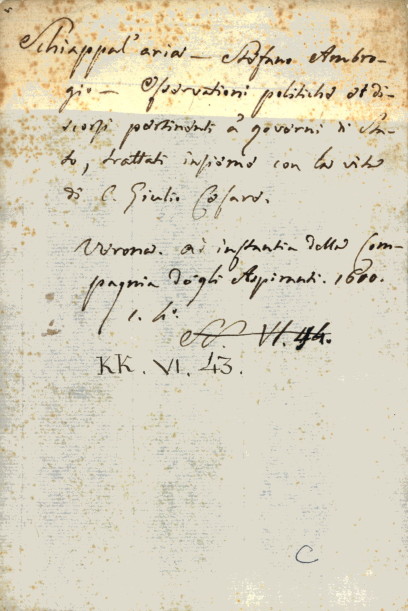 Schiappal'aria - Stefano Ambro-
gio - Osservationi politiche et di-
scorsi pertinenti à governi di Sta-
to, trattati insieme con la vita
di C. Giulio Cesare.
Verona. ad instantia della Com-
pagnia degli Aspiranti. 1600.
1. 4°.
VI. 44.
KK. VI. 43.
C